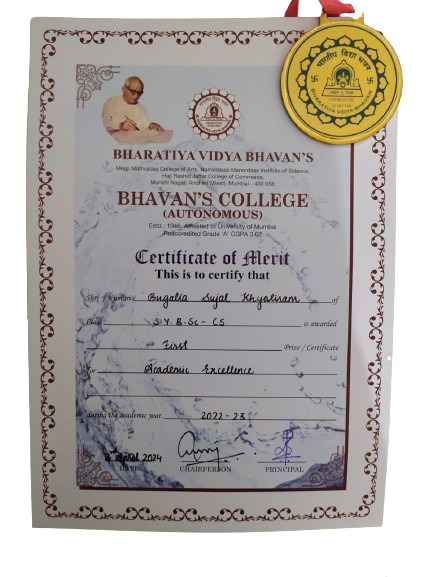 भारतीय विद्या भवन
BHARATIYA VIDYA BHAVAN
BHARATIYA VIDYA BHAVAN'S
Megji Mathradas College of Arts, Narrondass Manordass Institute of Science,
Haji Rashid Jaffer College of Commerce,
Munshi Nagar, Andheri (West), Mumbai - 400 058.
BHAVAN'S COLLEGE
(AUTONOMOUS)
Estd : 1946, Affiliated to University of Mumbai
Reaccredited Grade 'A' CGPA 3.02
Certificate of Merit
This is to certify that
Shri / Kumari Bugalia Sujal Khyaliram of
Class S.Y.B.Sc - CS is awarded
First Prize / Certificate
for Academic Excellence
during the academic year 2022 - 23
April 2024
DATE CHAIRPERSON PRINCIPAL